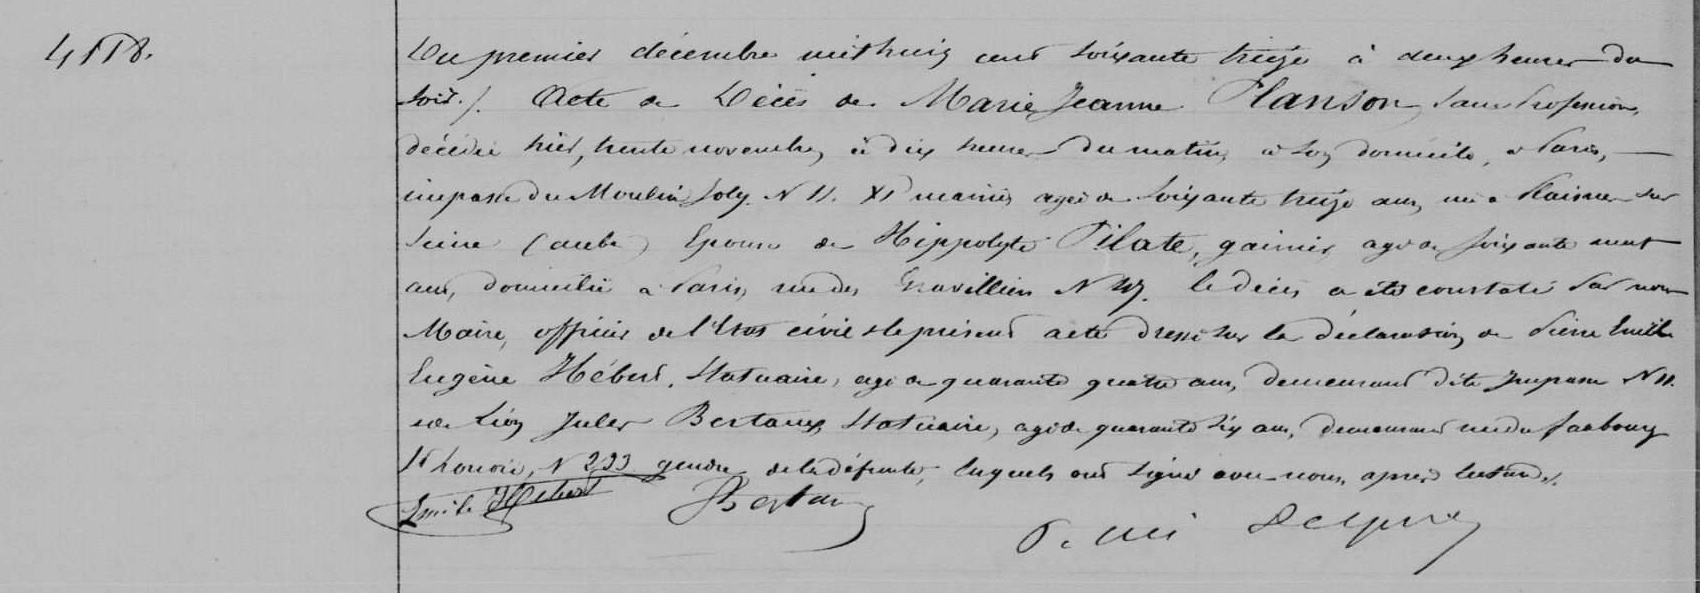 4118.
Du premier décembre mil huit cent soixante treize à deux heures du
soir./. Acte de Décès de Marie Jeanne Planson, sans profession,
décédée hier, trente novembre, à dix heures du matin, à son domicile, à Paris,
impasse du Moulin Joly N 11. XIe mairie, agée de soixante treize ans, née à Plaisne sur
Seine (aube) Epouse de Hippolyte Pilate, gainier, agé de soixante neuf
ans, domicilié à Paris, rue des Gravilliers N. le décès a été constaté par nous
Maire, officier de l'Etat civil & le présent acte dressé sur la déclaration de Pierre Emile
Eugène Hébert, Statuaire, agé de quarante quatre ans, demeurant dite Impasse N 11.
& de Léon Jules Bertaux, Statuaire, agé de quarante six ans, demeurant rue du faubourg
St honoré, N 233 gendre de la défunte, lesquels ont signé avec nous, après lecture./.
Emile Hébert Bertaux